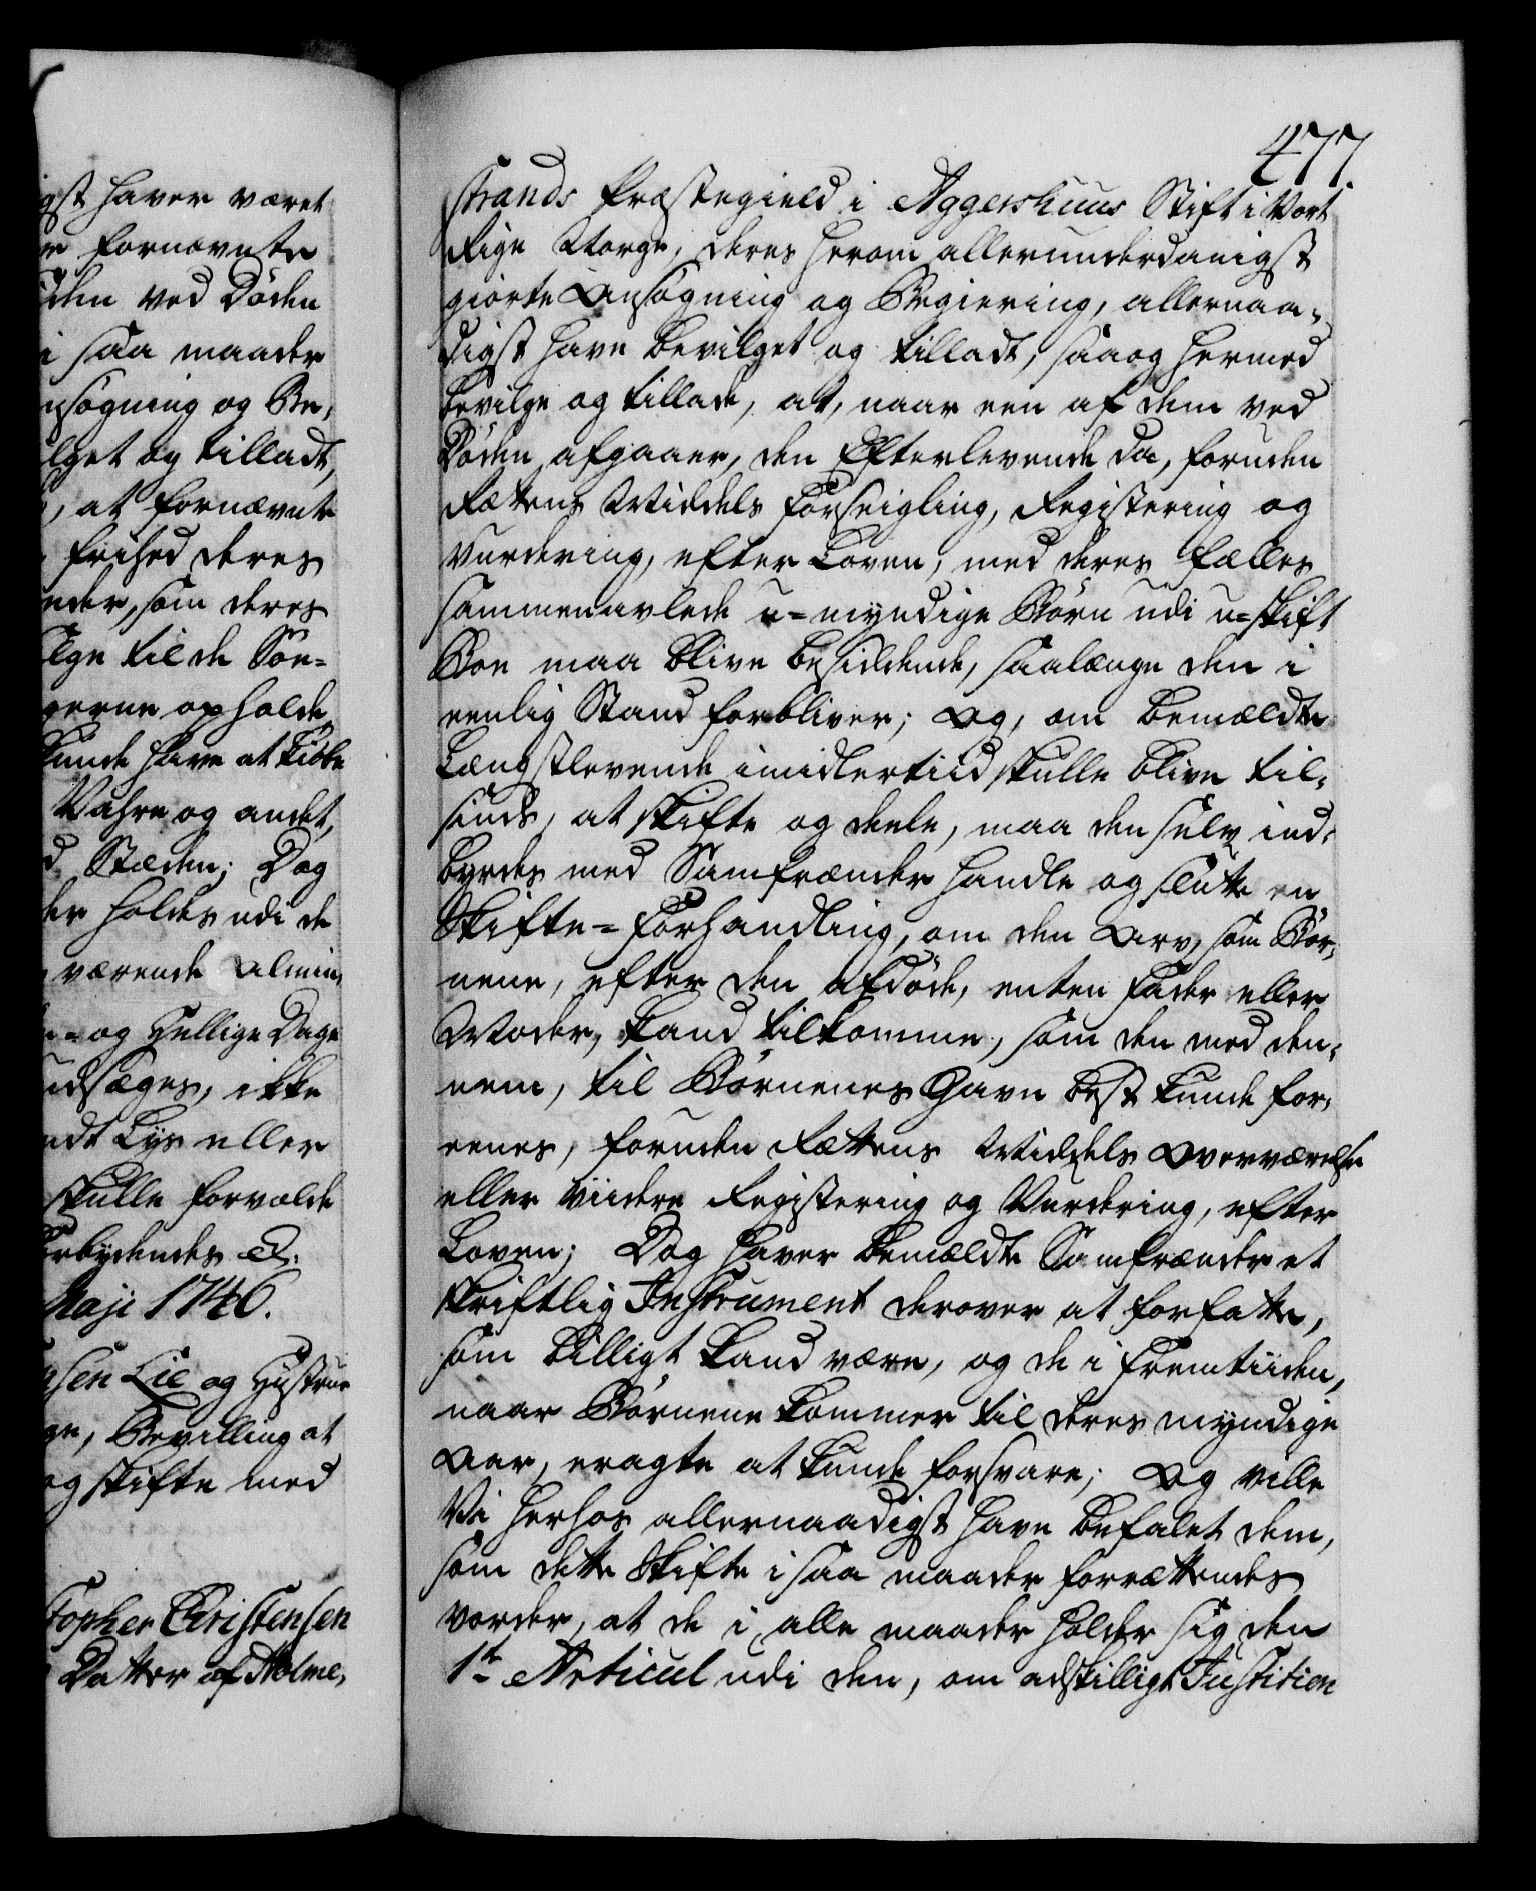 igst haver været
fornævnte
ved Døden
i saa maader
nsøgning og Be,
lget og tilladt,
, at fornævnte
frihed deres
nder, som deres
lge til de Søn=
gerne opholde
kunde have at kiøbe
Vahre og andet,
d Stæden; Dog
der holdes udi de
værende almin,
= og Hellige Dage
udsæges, ikke
ndt Lys eller
skulle forvolde
rbydendes &:
Maji 1746.
nsen Lie og Hustrue
ge, Bevilling at
og skifte med
topher Christensen
Datter af Holme,
477.
strands Præstegield i Aggershuus Stift i Vort
Rige Norge, deres herom allerunderdanigst
giorte Ansøgning og Begiering, allernaa,
digst have bevilget og tilladt, saa og hermed
bevilge og tillade, at, naar een af dem ved
Døden afgaaer, den Efterlevende da, foruden
Rættens Middels Forseigling, Registering og
Vurdering, efter Loven, med deres fælles
sammenavlede u=myndige Børn udi u=skift
Boe maa blive besiddende, saalænge den i
eenlig Stand forbliver; Og, om bemældte
Længstlevende imidlertiid skulle blive til,
sinds, at skifte og deele, maa den selv ind,
byrdes med Samfrænder handle og slutte en
Skifte=Forhandling, om den Arv, som Bør,
nene, efter den afdøde, enten Fader eller
Moder, kand tilkomme, som den med den,
nem, til Børnenes Gavn best kunde for,
eenes, foruden Rættens Middels Overværelse
eller viidere Registering og Vurdering, efter
Loven; Dog haver bemældte Samfrænder et
skriftlig Instrument derover at forfatte,
som billigt kand være, og de i Fremtiiden,
naar Børnene kommer til deres myndige
Aar, eragte at kunde forsvare; Og ville
Vi herhos allernaadigst have befalet dem,
som dette Skifte i saa maader forrettendes
vorder, at de i alle maader holder sig den
1te Articul udi den, om adskilligt Justitien